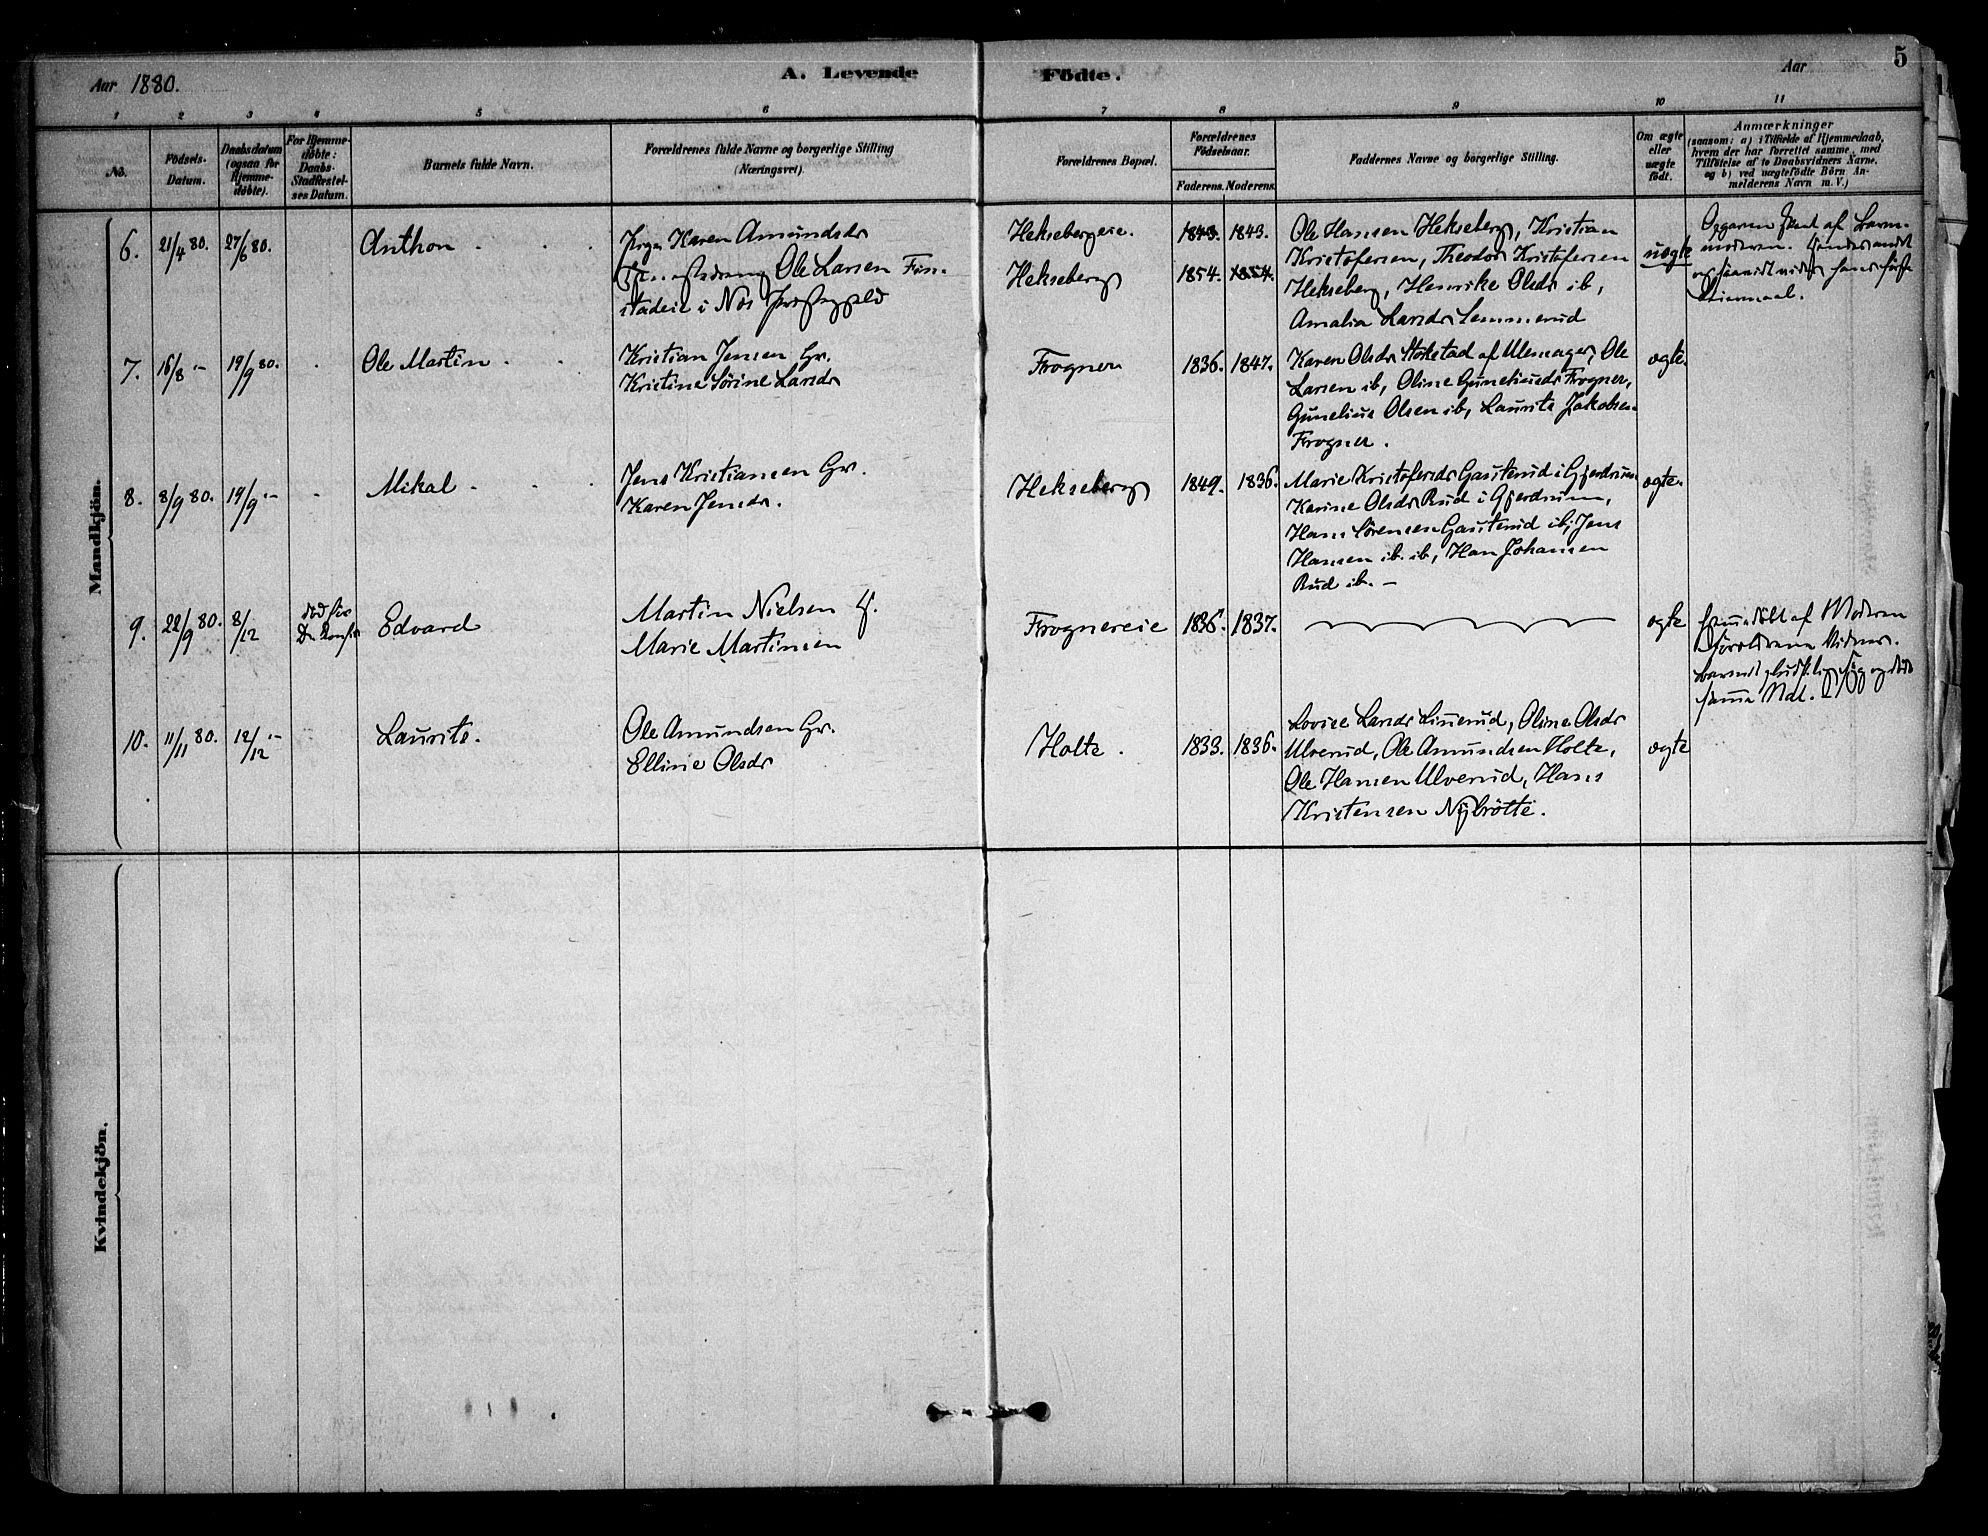 5
Aar 1880.
A. Levende Födte.
Aar
1 2 3 4 5 6 7 8 9 10 11
No.
Födsels-
Datum.
Daabsdatum
(ogsaa for
Hjemme-
döbte).
For Hjemme-
döbte:
Daabs-
Stadfæstel-
ses Datum.
Barnets fulde Navn.
Forældrenes fulde Navne og borgerlige Stilling
(Næringsvei)
Forældrenes Bopæl.
Forældrenes
Födselsaar.
Faderens. Moderens.
Faddernes Navne og borgerlige Stilling.
Om ægte
eller
uægte
födt.
Anmærkninger
(saasom: a) i Tilfælde af Hjemmedaab,
hvem der har forrettet samme, med
Tilföielse af to Daabsvidners Navne,
og b) ved uægtefödte Börn An-
melderens Navn m. V.)
Mandkjön.
6. 21/4 80. 27/6 80.
Anthon
Karen Amundsdr
Ole Larsen Fin-
stadeie i Nes
Heksebergeie.
Hekseberg
1843. 1843.
1854. 1854.
Ole Hansen Hekseberg, Kristian
Kristofersen, Theodor Kristofersen
Hekseberg, Henrike Olsdr ib,
Amalia Larsdr Lemmerud
uægte
af
moderen.
7. 16/8 - 19/9 80.
Ole Martin
Kristian Jensen Gr.
Kristine Sörine Larsdr
Frogner
1836. 1847.
Karen Olsdr Stokstad af Ulensager, Ole
Larsen ib, Oline Guneliusdr Frogner,
Gunelius Olsen ib, Laurits Jakobsen
Frogner.
ægte.
8. 8/9 80. 19/9 -
Mikal
Jens Kristiansen Gr.
Karen Jensdr.
Hekseberg
1849. 1836.
Marie Kristofersdr Gasterud i Gjerdrum
Karine Olsdr Rud i Gjerdrum,
Hans Sörensen Gasterud ib, Jens
Hansen ib. ib, Han Johansen
Rud ib. -
ægte.
9. 22/9 80. 8/12
död för
Edvard
Martin Nielsen
Marie Martinsen
Frognereie
1836. 1837.
ægte
af Moderen
10. 11/11 80. 12/12 -
Laurits.
Ole Amundsen Gr.
Elline Olsdr
Holte.
1833. 1836.
Lovise Larsdr Linerud, Oline Olsdr
Ulverud, Ole Amundsen Holte,
Ole Hansen Ulverud, Hans
Kristensen Nybrötte.
ægte
Kvindekjön.